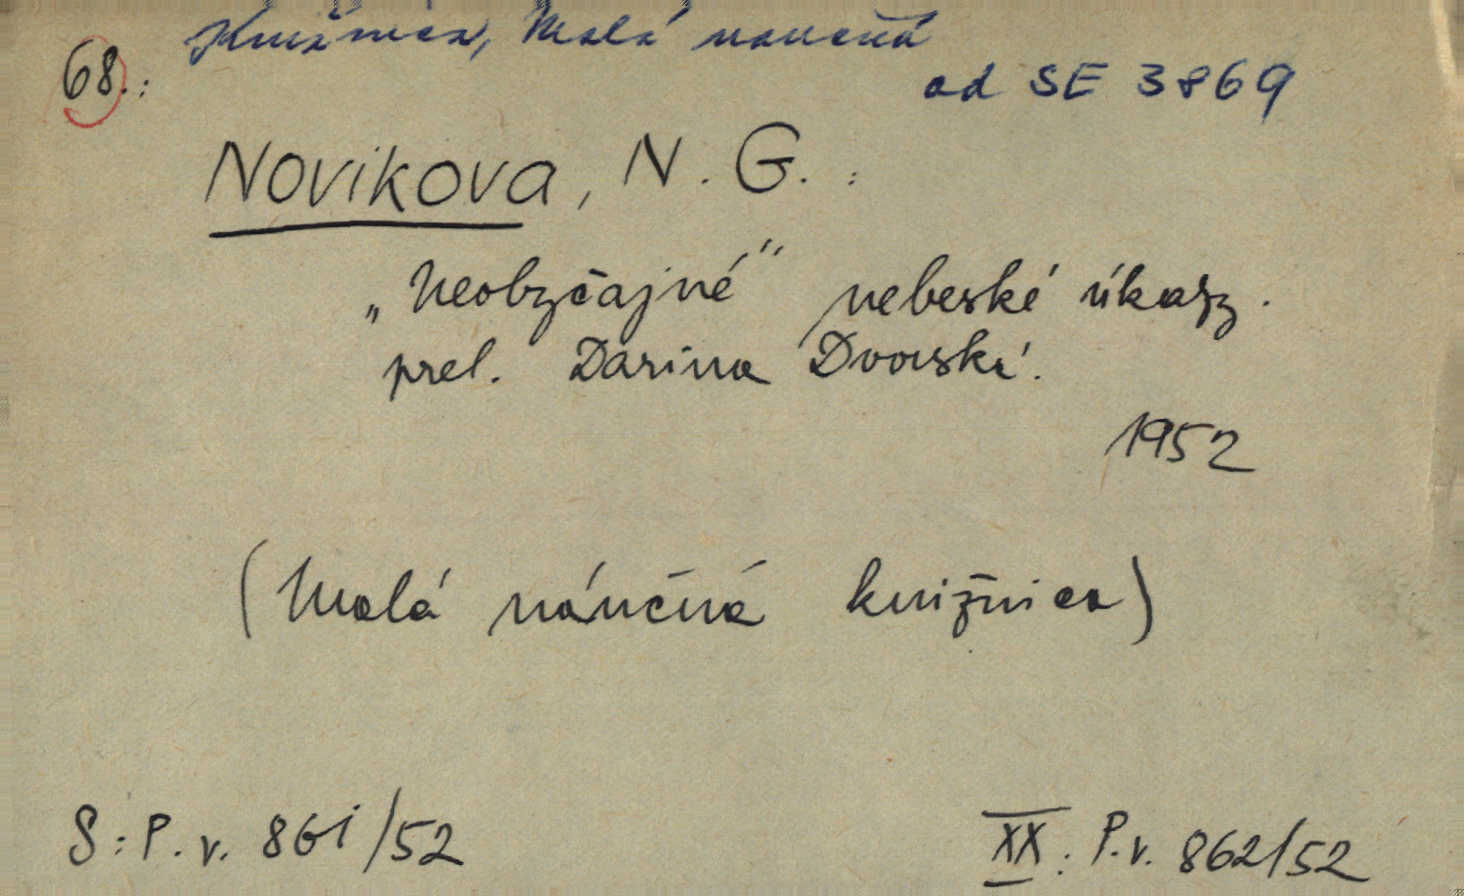 Knižnica, Malá náučná
68.:
ad SE 3869
Novikova, N. G. :
„Neobyčajné" nebeské úkazy.
prel. Darina Dvorská.
1952
(Malá náučná knižnica)
S: P. v. 861/52
XX. P. v. 862/52